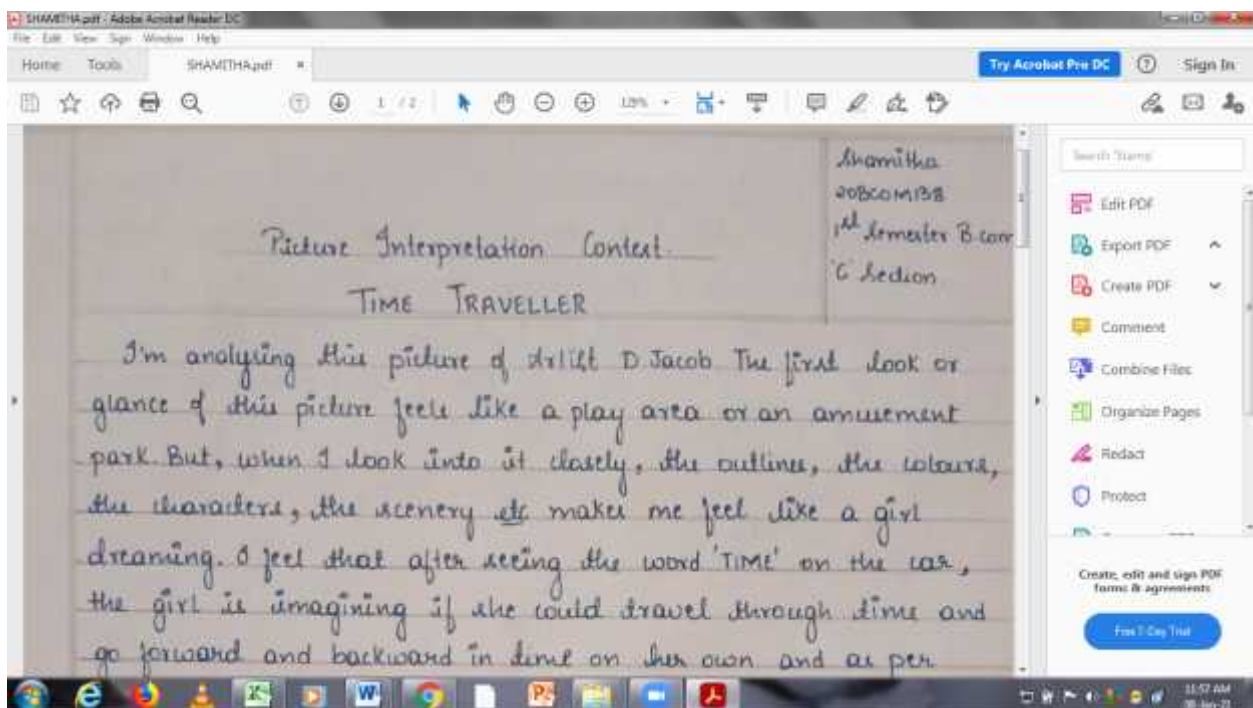 SHAMITHA.pdf - Adobe Acrobat Reader DC
File Edit View Sign Window Help
Home Tools SHAMITHA.pdf
Try Acrobat Pro DC
Sign In
1 / 2
Shamitha
20BCOM138
1st semester B.com
'C' Section
Picture Interpretation Contest.
TIME TRAVELLER
I'm analysing this picture of Artist D Jacob The first look or
glance of this picture feels like a play area or an amusement
park. But, when I look into it closely, the outlines, the colours,
the characters, the scenery etc makes me feel like a girl
dreaming. I feel that after seeing the word 'TIME' on the car,
the girl is imagining if she could travel through time and
go forward and backward in time on her own and as per
Edit PDF
Export PDF
Create PDF
Comment
Combine Files
Organize Pages
Redact
Protect
Create, edit and sign PDF
forms & agreements
Free 7-Day Trial
11:57 AM